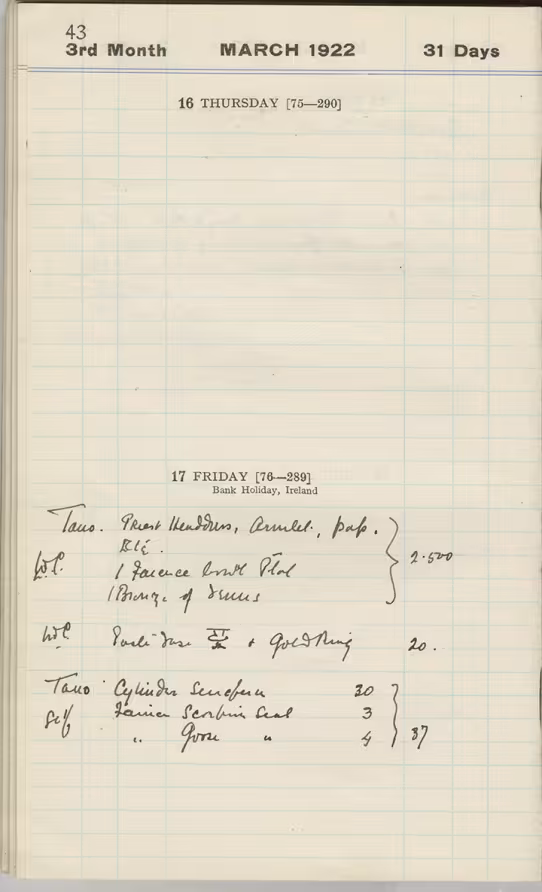 43
3rd Month MARCH 1922 31 Days
16 THURSDAY [75—290]
17 FRIDAY [76—289]
Bank Holiday, Ireland
Tano. Priest Headdress, Amulet, pap.
Etc.
1 Faience bowl Ptol } 2.500
1 Bronze of Venus
vase + Gold Ring 20.
Tano Cylinder Seneferu 30
Self Faience Scorpion Seal 3
" Goose " 4 } 37